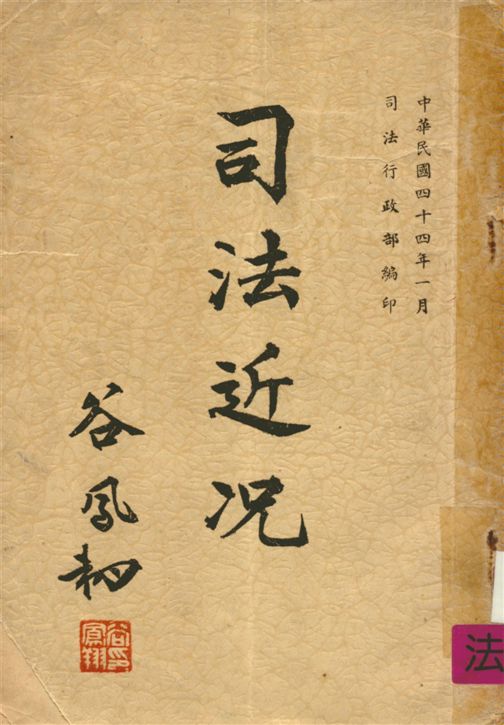 中華民國四十四年一月
司法行政部編印
司法近况
谷鳳翔
谷鳳翔印
法